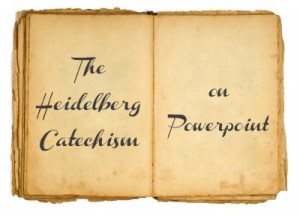 The
Heidelberg
Catechism
on
Powerpoint